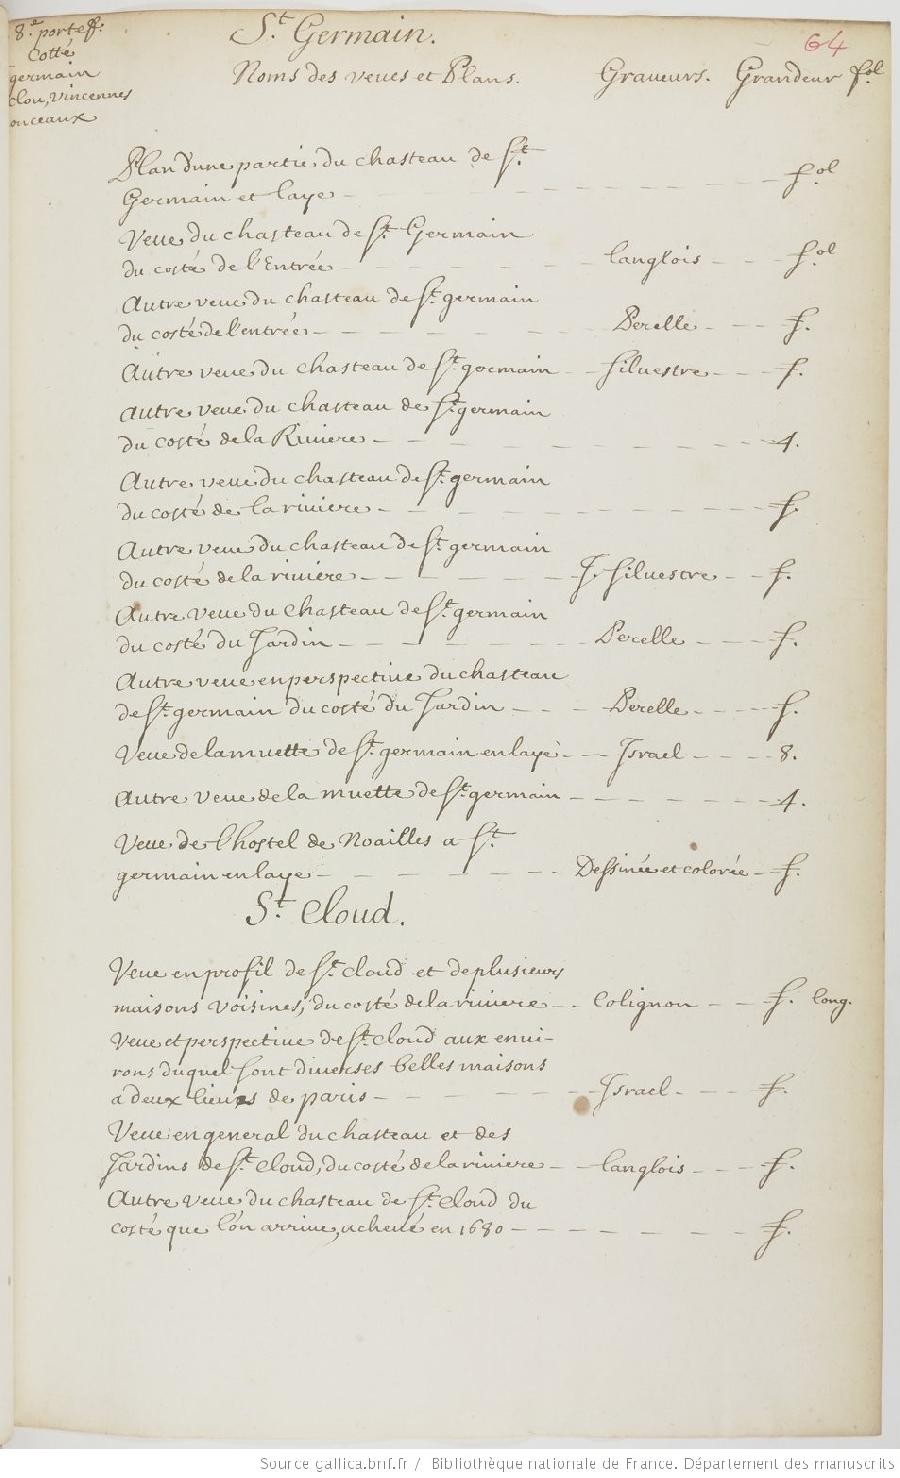 8.e portef.
Cotté
germain
clou, vincennes
ouceaux
St. Germain.
64
Noms des veues et Plans. Graueurs. Grandeur fol.
Plan d'une partie du chasteau de St.
Germain et laye - - - - - - fol
Veue du chasteau de St. Germain
du costé de l'Entrée - - - - Langlois - - - fol
Autre veue du chasteau de St. germain
du costé de l'entrée - - - - Perelle - - - f.
Autre veue du chasteau de St. germain - - Siluestre - - - f.
Autre veue du chasteau de St. germain
du costé de la Riuiere - - - - - - - 4.
Autre veue du chasteau de St. germain
du costé de la riuiere - - - - - - - f.
Autre veue du chasteau de St. germain
du costé de la riuiere - - - - - J. Siluestre - - f.
Autre veue du chasteau de St. germain
du costé du Jardin - - - - - Perelle - - - f.
Autre veue en perspectiue du chasteau
de St. germain du costé du Jardin - - - Perelle - - - - f.
Veue de la muette de St. germain en laye - - - Israel - - - - 8.
Autre veue de la muette de St. germain - - - - - - 4.
Veue de l'hostel de Noailles a St.
germain en laye - - - - - - Dessinée et colorée - f.
St. Cloud.
Veue en profil de St. cloud et de plusieurs
maisons voisines, du costé de la riuiere - - Colignon - - - f. long.
Veue et perspectiue de St. cloud aux enui-
rons duquel sont diuerses belles maisons
a deux lieues de paris - - - - - - Israel - - - - f.
Veue en general du chasteau et des
Jardins de St. Cloud, du costé de la riuiere - - Langlois - - - - f.
Autre veue du chasteau de St. Cloud du
costé que l'on arriue, acheué en 1680 - - - - - - - f.
Source gallica.bnf.fr / Bibliothèque nationale de France. Département des manuscrits